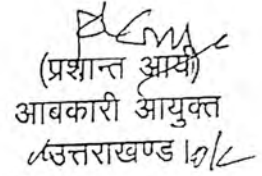 (प्रशान्त आर्य)
आबकारी आयुक्त
उत्तराखण्ड।